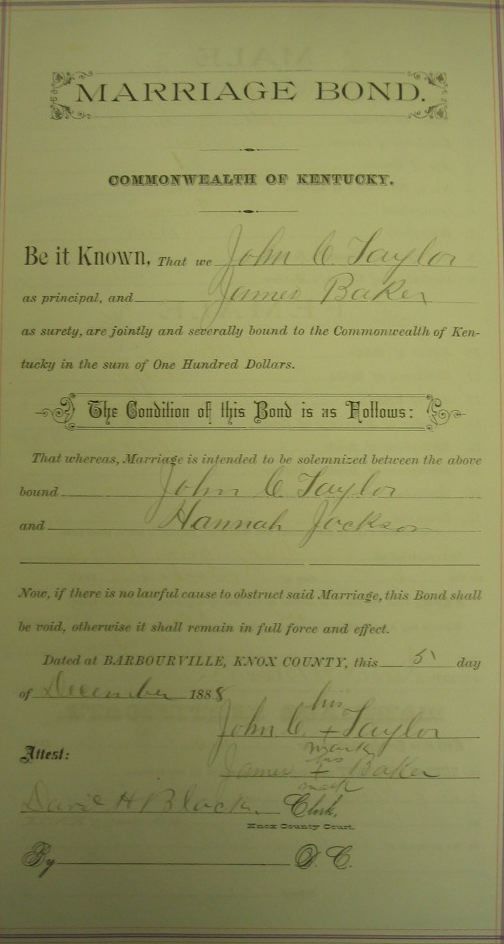 MARRIAGE BOND.
COMMONWEALTH OF KENTUCKY.
Be it Known, That we John C. Taylor
as principal, and James Baker
as surety, are jointly and severally bound to the Commonwealth of Ken-
tucky in the sum of One Hundred Dollars.
The Condition of this Bond is as Follows:
That whereas, Marriage is intended to be solemnized between the above
bound John C Taylor
and Hannah Jackson
Now, if there is no lawful cause to obstruct said Marriage, this Bond shall
be void, otherwise it shall remain in full force and effect.
Dated at BARBOURVILLE, KNOX COUNTY, this 5 day
of December 1888
his
John C. + Taylor
mark
Attest:
his
James + Baker
mark
H Black Clerk,
Knox County Court.
By D. C.